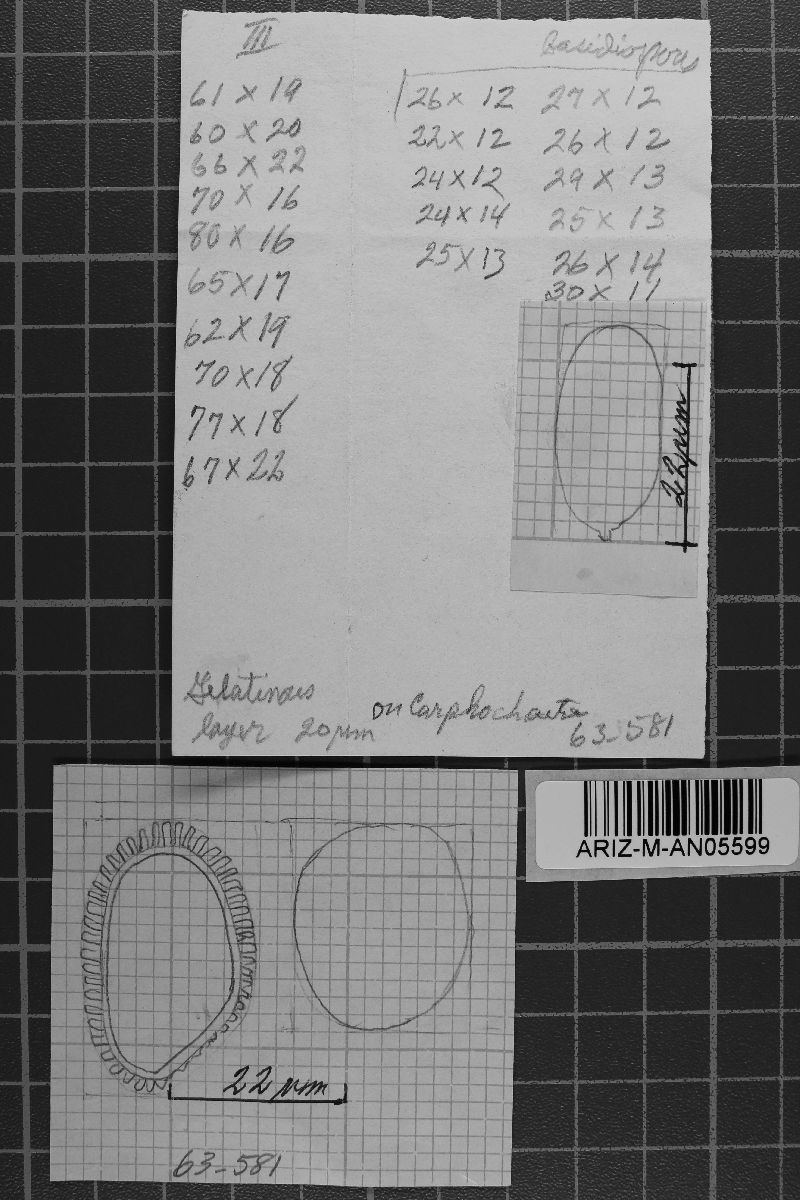 III
61 x 19
60 x 20
66 x 22
70 x 16
80 x 16
65 x 17
62 x 19
70 x 18
77 x 18
67 x 22
Basidiospores
26 x 12 27 x 12
22 x 12 26 x 12
24 x 12 29 x 13
24 x 14 25 x 13
25 x 13 26 x 14
30 x 11
22 µm
Gelatinous
layer 20 µm
on Carphochaete
63-581
ARIZ-M-AN05599
22 µm
63-581